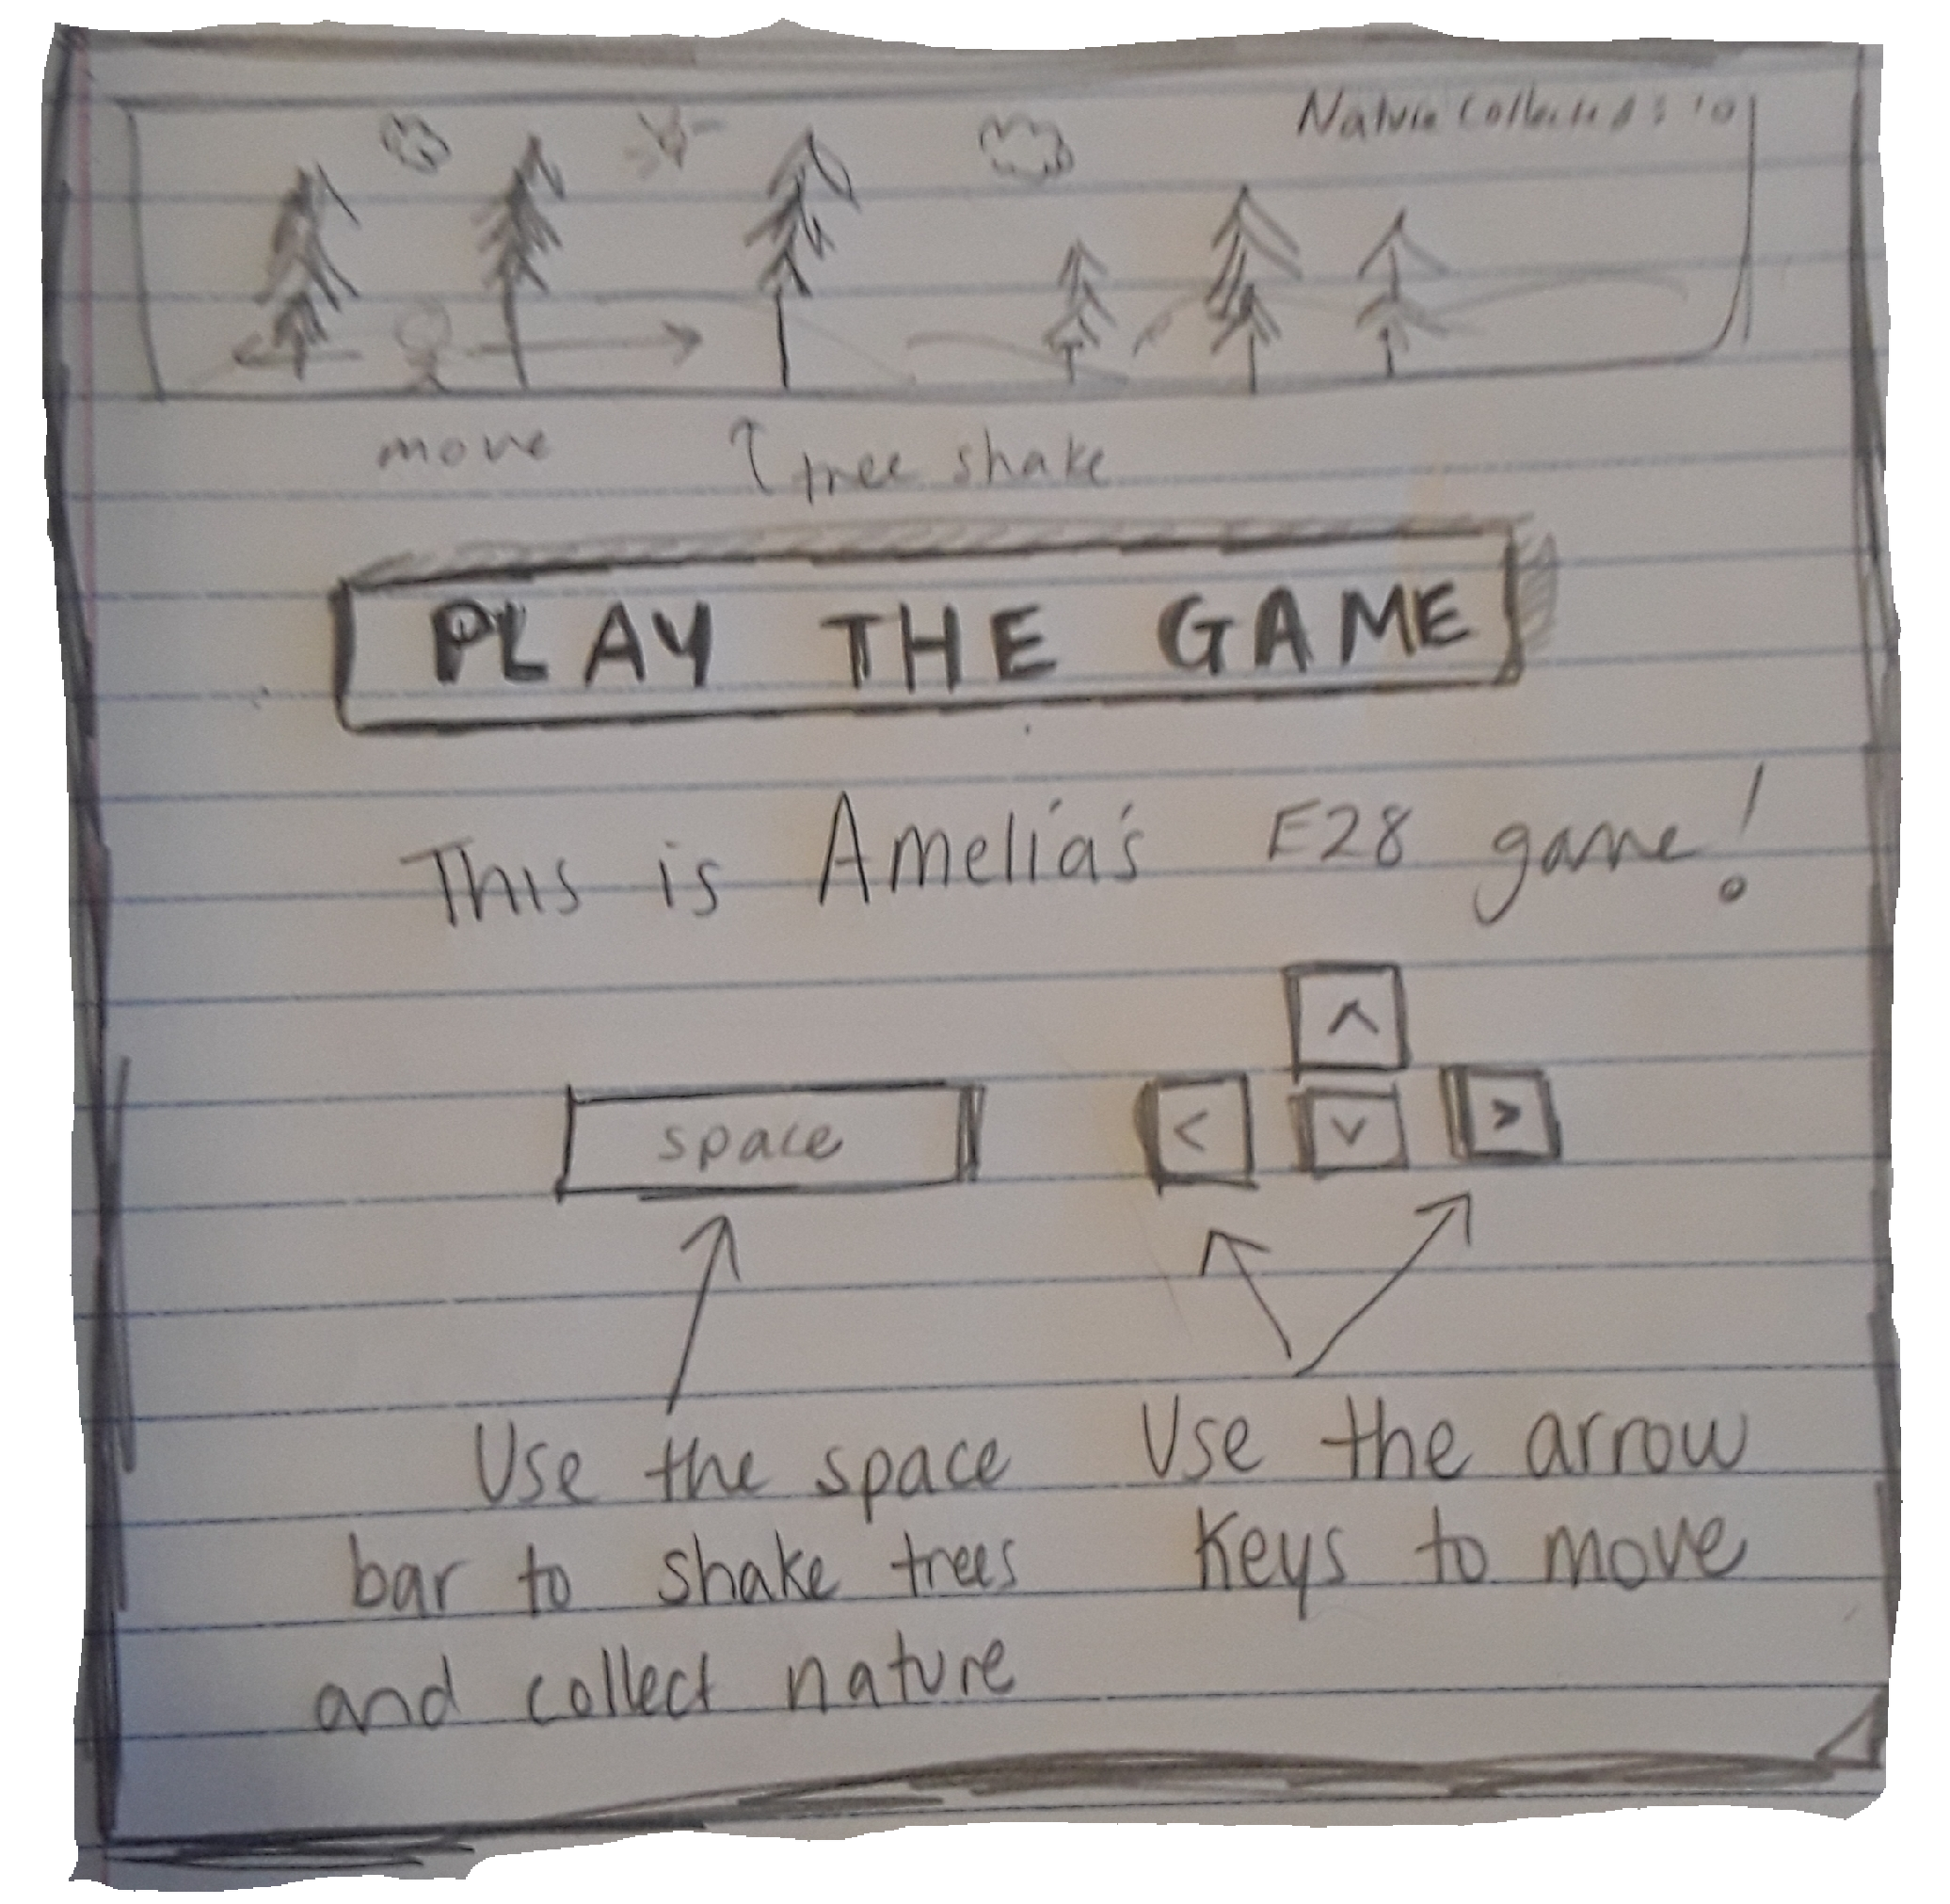 Nature Collected: 10
move
tree shake
PLAY THE GAME
This is Amelia's E28 game!
^
space < v >
Use the space
bar to shake trees
and collect nature
Use the arrow
keys to move